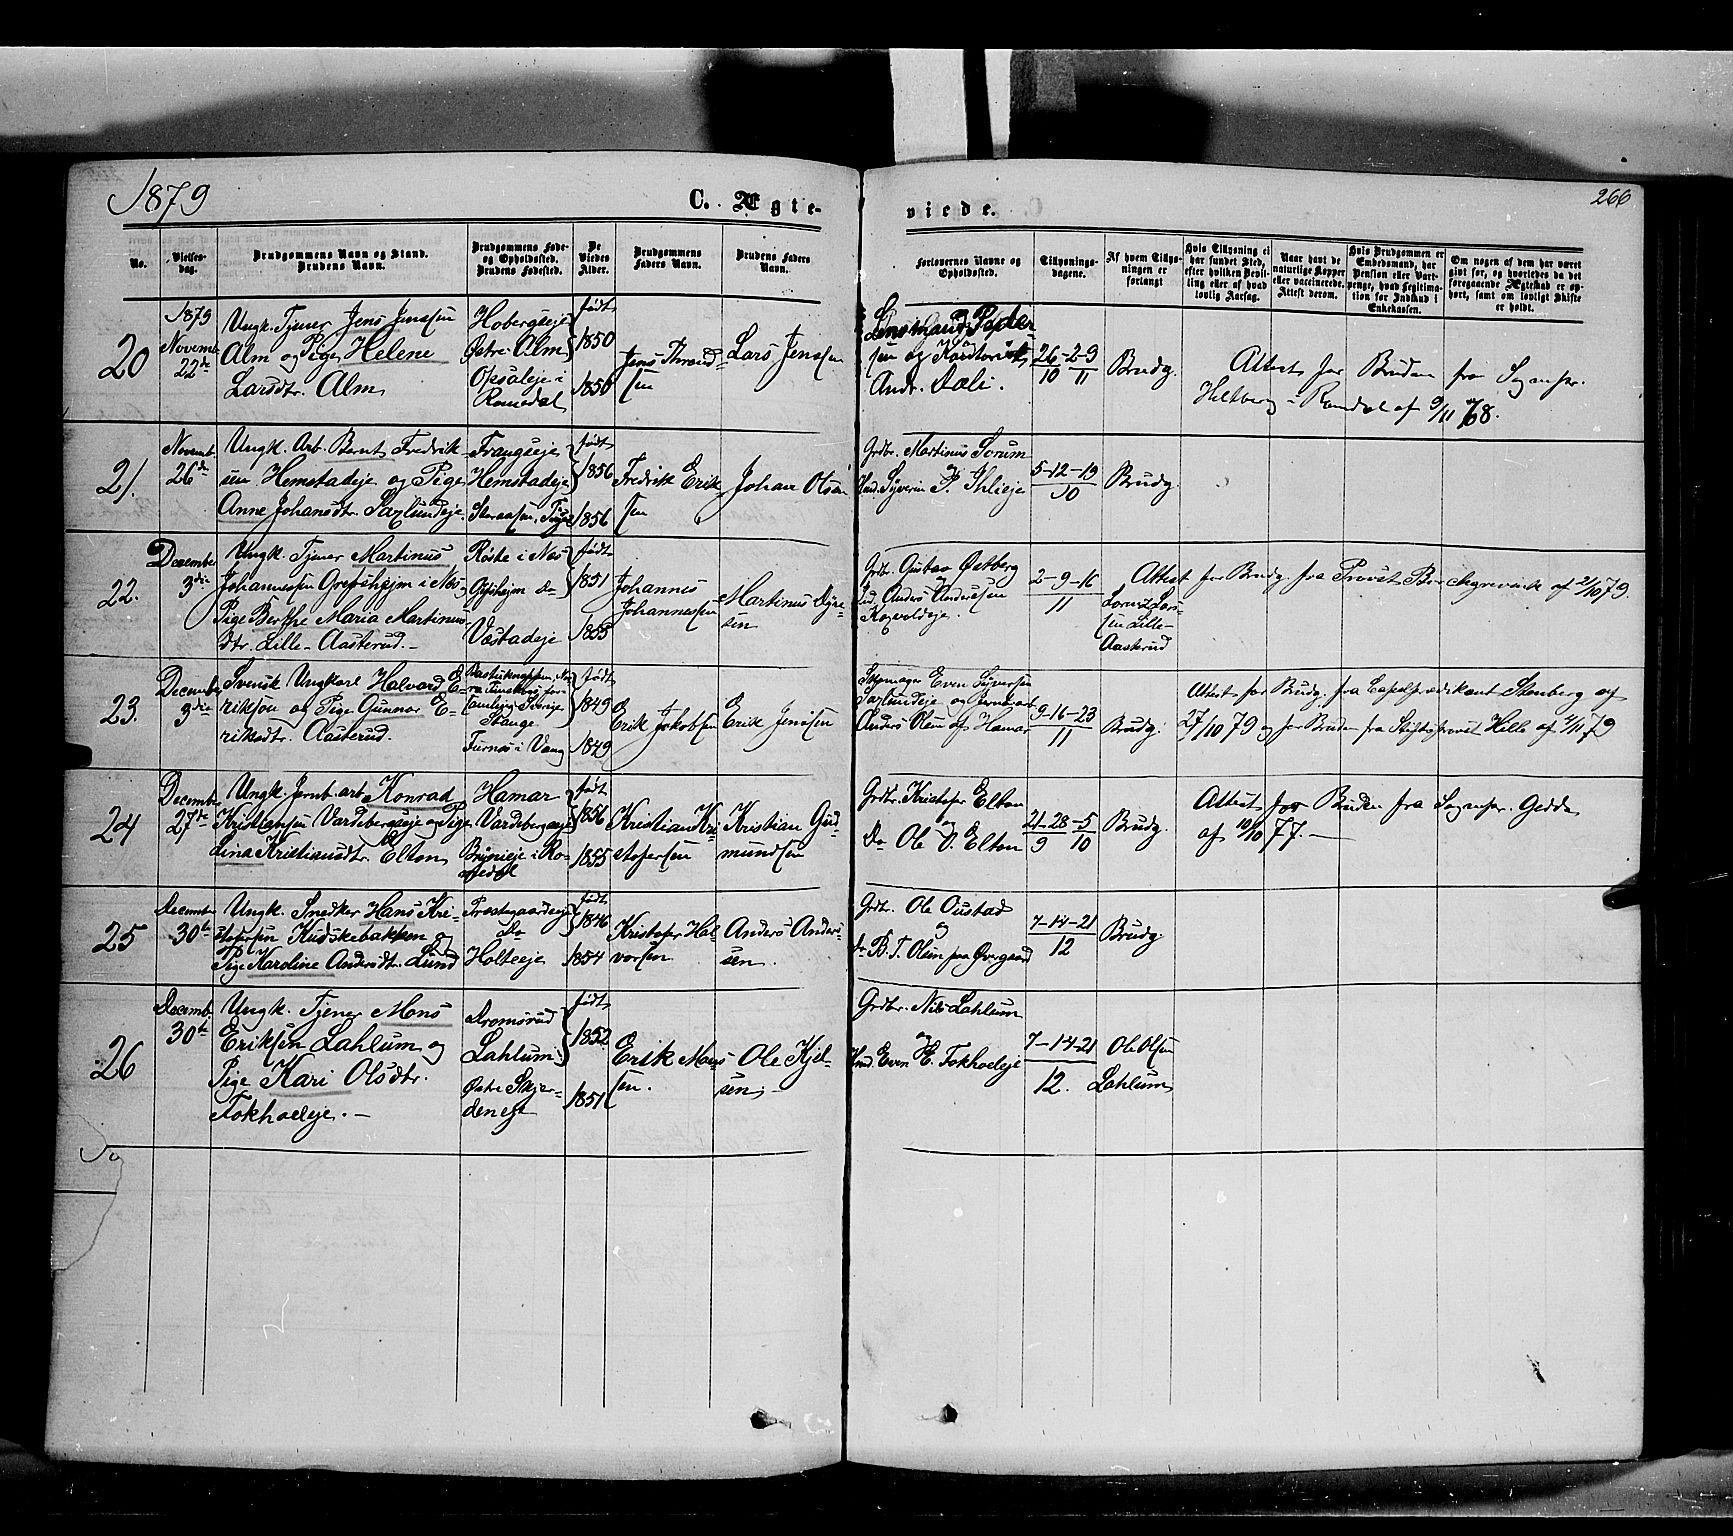 1879
C. Ægte-
viede.
266
No.
Vielses-
dag.
Brudgommens Navn og Stand.
Brudens Navn.
Brudgommens Føde-
og Opholdssted.
Brudens Fødested.
De
Viedes
Alder.
Brudgommens
Faders Navn.
Brudens Faders
Navn.
Forlovernes Navne og
Opholdssted.
Tillysnings-
dagene.
Af hvem Tillys-
ningen er
forlangt
Hvis Tillysning ei
har fundet Sted,
efter hvilken Bevil-
ling eller af hvad
lovlig Aarsag.
Naar havt de
naturlige Kopper
eller vaccinerede.
Attest derom.
Hvis Brudgommen er
Embedsmand, har
Pension eller Vart-
penge, hvad Legitima-
tion for Indskud i
Enkekassen.
Om nogen af dem har været
gift før, og hvorledes da det
foregaaende Ægteskab er op-
hørt, samt om lovligt Skifte
er holdt.
20
1879
Novemb.
22de
Ungk. Tjener Jens Jensen
Alm og Pige Helene
Larsdtr. Alm
Hobergseje
Østre Alm
Opsaleje i
Romedal
født
1850
1850
Jens Thrond-
sen
Lars Jensen
Lensmand Peder-
sen og Kontorist
Andr. Dæli.
26-2-9
10 11
Brudg.
Attest for Bruden fra Sognepr.
Heltberg i Romdal af 9/11 78.
21.
Novemb.
26de
Ungk. Arb. Bernt Fredrik-
sen Hemstadeje og Pige
Anne Johansdtr. Saxlundeje.
Frangseje
Hemstadeje
født
1856
1856
Fredrik Erik-
sen
Johan Olsen
Grdbr. Martinus Sorum
og
Hmd. Syverin P. Ihleeje
5-12-19
10
Brudg.
22.
December
3die
Ungk. Tjener Martinus
Johannessen Grefsheim i Næs
Pige Berthe Maria Martinus-
dtr. Lille-Aasterud.-
Røste i Næs
Grefsheim do
Væstadeje
født
1851
1855
Johannes
Johannessen
Martinus Syver-
sen
Grdbr. Gustav Østberg
og
Anders Andersen
2-9-16
11
Lorentz Lars-
sen Lille-
Aasterud
Attest for Brudg. fra Provst Borchgrevink af 21/10 79.
23.
December
3die
Svensk Ungkarl Halvard E-
rikson og Pige Gunnor E-
riksdtr. Aasterud.
Sverige
Stange
Furnes i Vang
født
1849
1849
Erik Jakobsen
Erik Jensen
Skomager Even Syversen
Saxlundeje og
Anders Olsen af Hamar
9-16-23
11
Brudg.
Attest for Brudg. fra Capelprædikant Stenberg af
27/10 79 og for Bruden fra Stiftsprovst Hille af 1/11 79
24
December
27de
Ungk. Jernb. arb. Konrad
Kristiansen Vardebergseje og Pige
Lina Kristiansdtr Elton
Hamar
Vardebergseje
Bryneje i Ro-
medal
født
1856
1855
Kristian Kri-
stofersen
Kristian Gud-
mundsen
Grdbr. Kristofer Elton
og
do Ole O. Elton
21-28-5
9 10
Brudg.
Attest for Bruden fra Sognepr. Gedde
af 10/10 77.-
25
December
30te
Ungk. Snedker Hans Kri-
stofersen Kudskebakken og
Pige Karoline Andersdtr. Lund
Præstegaardseje
do
Holteeje
født
1846
1854
Kristofer Hal-
vorsen
Anders Anders-
sen.
Grdbr. Ole Oustad
og
do B. T. Olsen paa Øvergaard
7-14-21
12
Brudg.
26
Decemb.
30te
Ungk. Tjener Mons
Eriksen Lahlum og
Pige Kari Olsdtr.
Fokhoeleje.-
Dromsrud
Lahlum
Østre Skjer-
den egt
født
1852
1851
Erik Mons-
sen.
Ole Kjel-
sen.
Grdbr. Nils Lahlum
og
Hmd. Even H. Fokhoeleje
7-14-21
12.
Ole Olsen
Lahlum